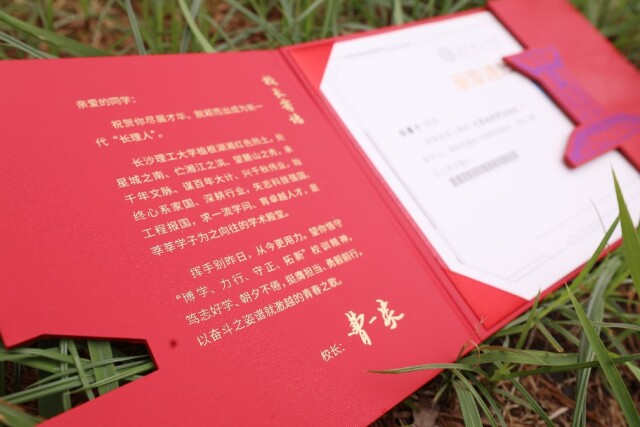 校长寄语
亲爱的同学：
祝贺你尽展才华、脱颖而出成为新一
代“长理人”。
长沙理工大学植根湖湘红色热土。负
星城之南、伫湘江之滨、望麓山之秀，承
千年文脉、谋百年大计、兴千秋伟业，始
终心系家国、深耕行业，矢志科技强国、
工程报国，求一流学问，育卓越人才，是
莘莘学子为之向往的学术殿堂。
挥手别昨日，从今更用力。望你恪守
“博学、力行、守正、拓新”校训精神，
笃志好学、朝夕不倦，挺膺担当、勇毅前行，
以奋斗之姿谱就激越的青春之歌。
校长：
曹一家